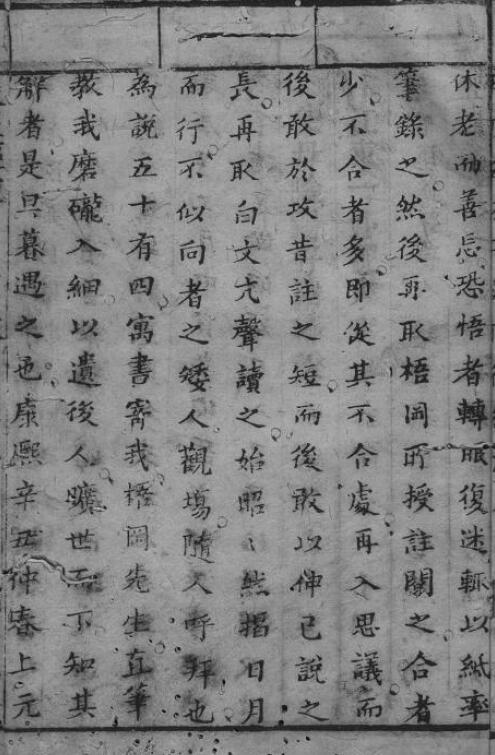 休老而善忘恐悟者轉眼復迷輒以紙率
筆錄之然後再取梧岡所授註闗之合者
少不合者多即從其不合處再入思議而
後敢於攻昔註之短而後敢以伸已說之
長再取白文尢聲讀之始昭〻然揭日月
而行不似向者之矮人觀場隨人呼拜也
為說五十有四寓書寄我梧岡先生直筆
教我磨礲入細以遺後人曠世而下知其
觧者是旦暮遇之也康熙辛丑仲春上元